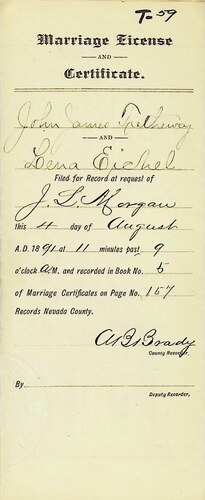 T-59
Marriage License
AND
Certificate.
John James Trethewey
AND
Lena Eichel
Filed for Record at request of
J. L. Morgan
this 4 day of August
A.D. 1891 at 11 minutes past 9
o'clock A.M. and recorded in Book No. 5
of Marriage Certificates on Page No. 157
Records Nevada County.
A B Brady
County Recorder.
By
Deputy Recorder.